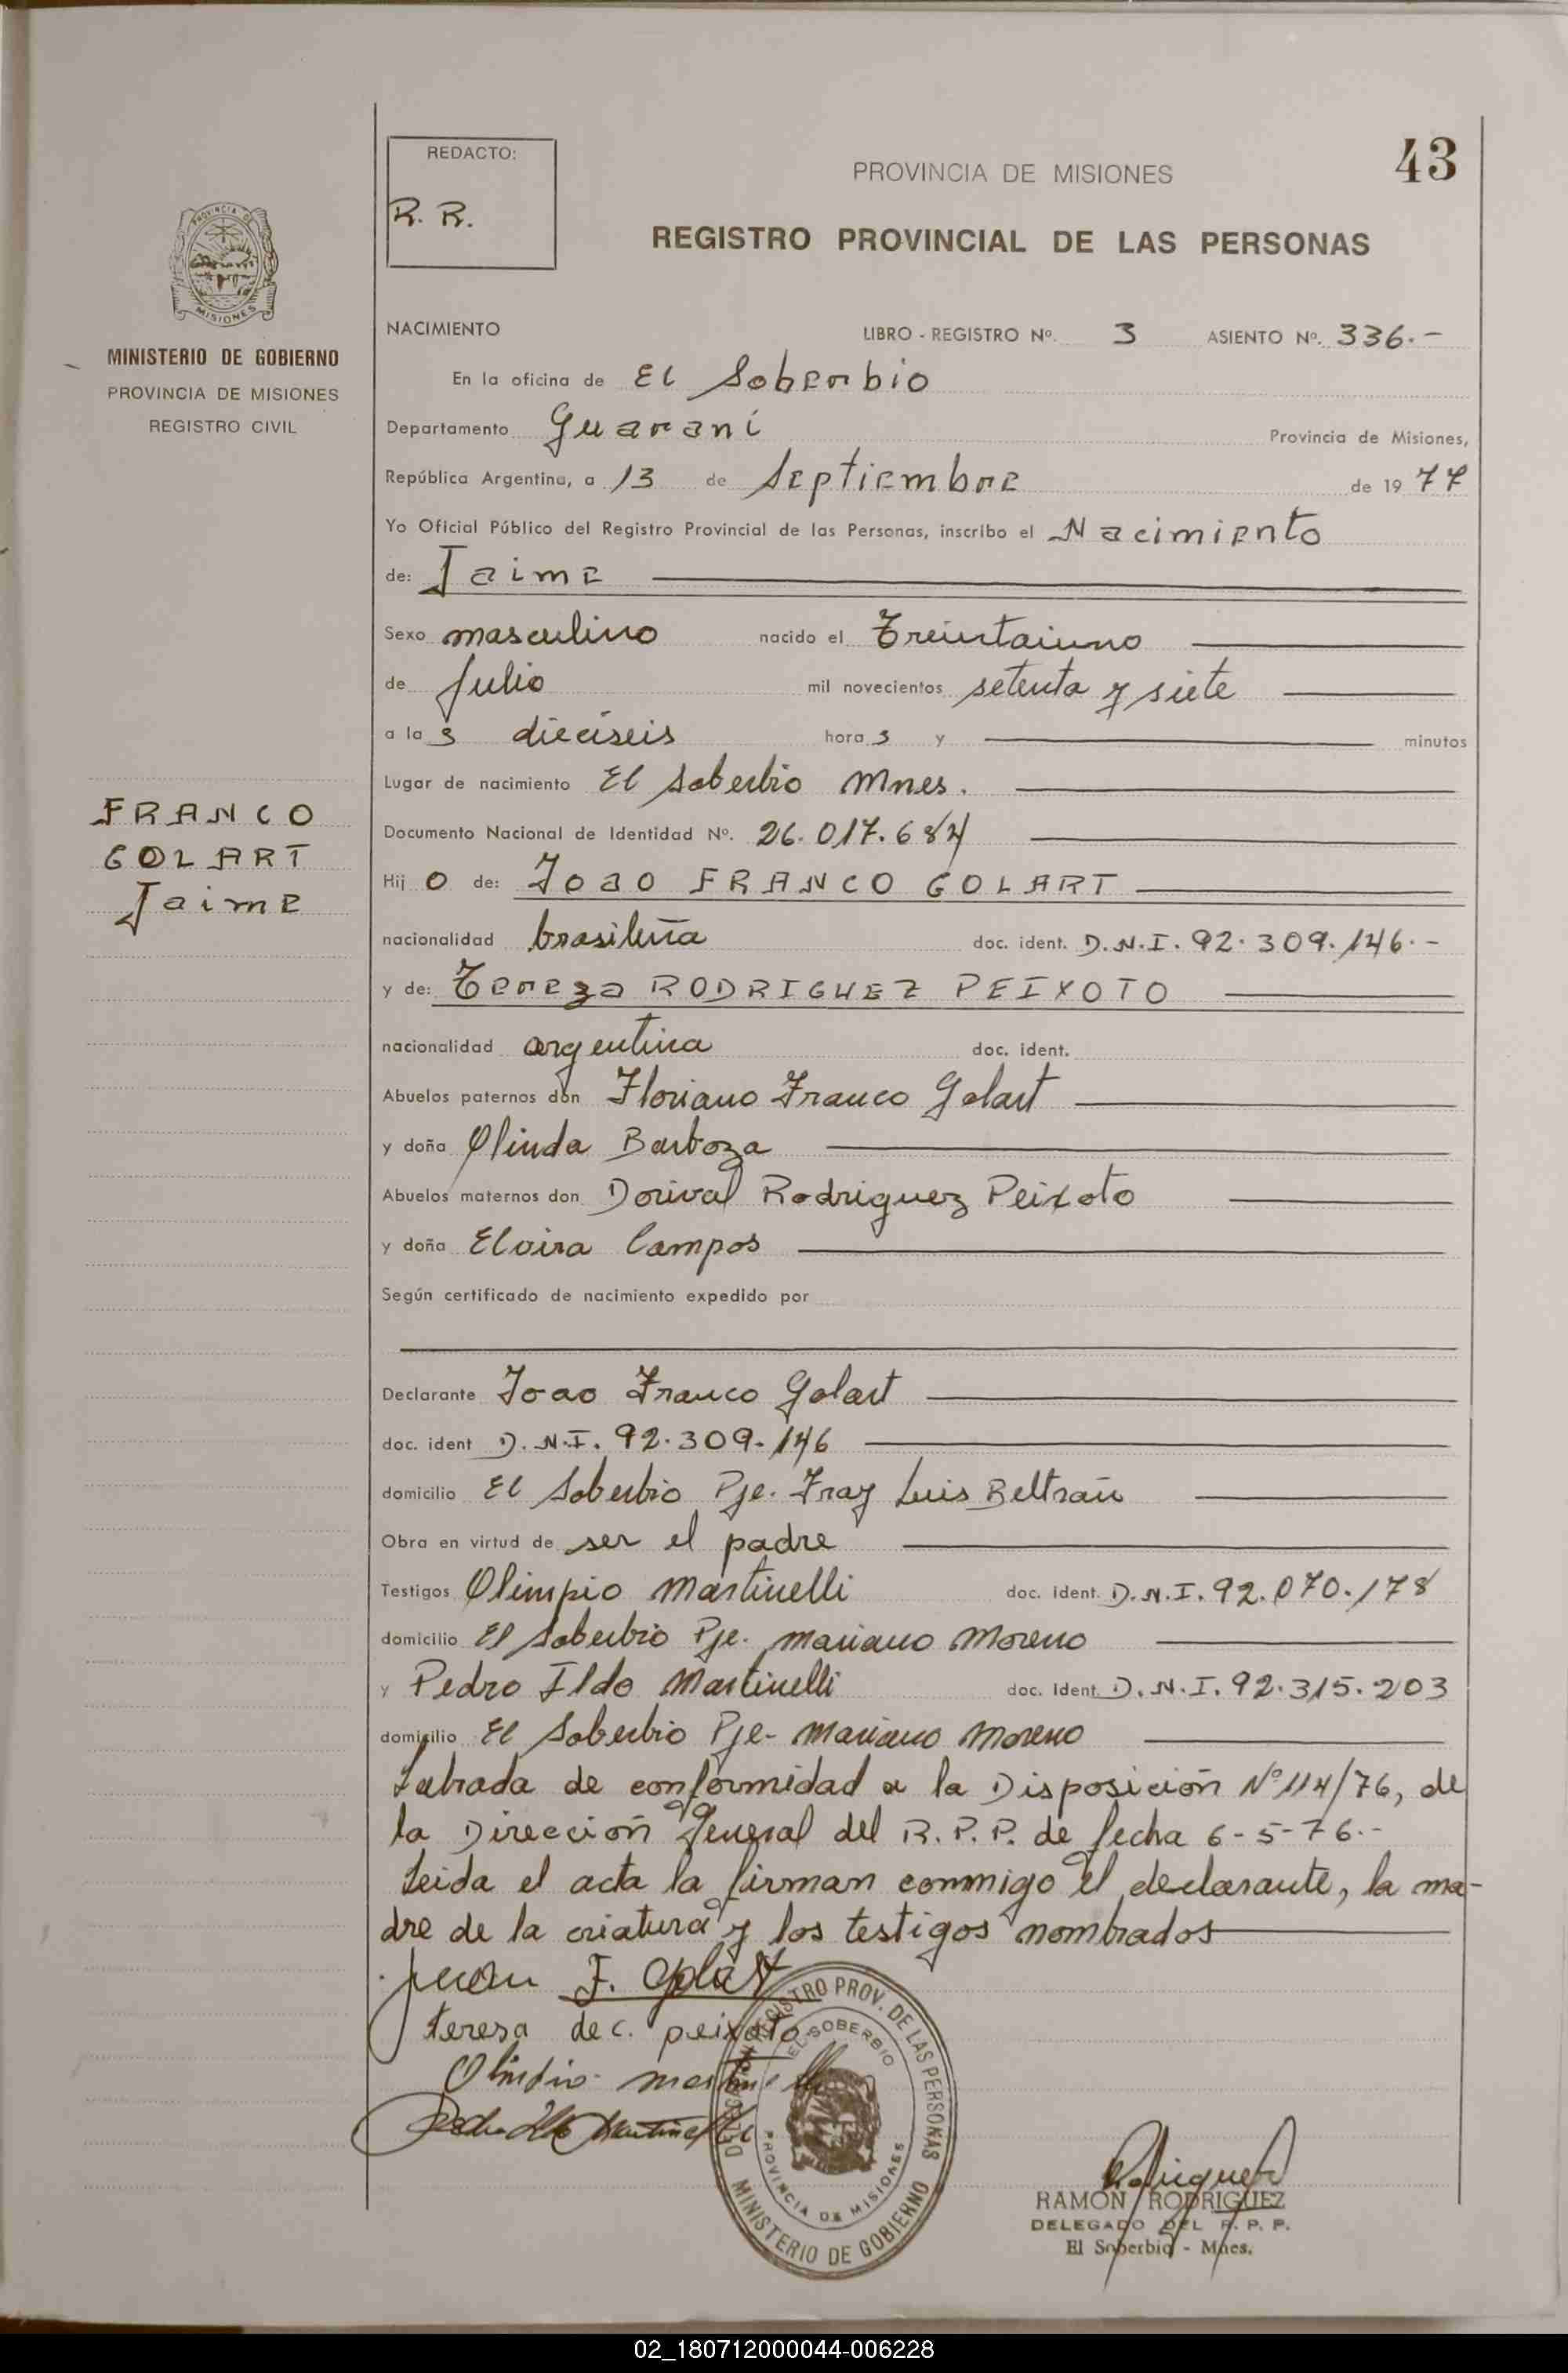 REDACTO:
R. R.
43
PROVINCIA DE MISIONES
REGISTRO PROVINCIAL DE LAS PERSONAS
PROVINCIA DE
MISIONES
MINISTERIO DE GOBIERNO
PROVINCIA DE MISIONES
REGISTRO CIVIL
FRANCO
GOLART
Jaime
NACIMIENTO LIBRO - REGISTRO Nº. 3 ASIENTO Nº. 336.-
En la oficina de El Soberbio
Departamento Guaraní Provincia de Misiones,
República Argentina, a 13 de Septiembre de 19 77
Yo Oficial Público del Registro Provincial de las Personas, inscribo el Nacimiento
de: Jaime
Sexo masculino nacido el Treintaiuno
de Julio mil novecientos setenta y siete
a la s dieciseis hora s y minutos
Lugar de nacimiento El Soberbio Mnes.
Documento Nacional de Identidad Nº. 26.017.684
Hij o de: Joao FRANCO GOLART
nacionalidad brasileña doc. ident. D.N.I. 92.309.146.-
y de: Tereza RODRIGUEZ PEIXOTO
nacionalidad argentina doc. ident.
Abuelos paternos don Floriano Franco Golart
y doña Olinda Barboza
Abuelos maternos don Dorival Rodriguez Peixoto
y doña Elvira Campos
Según certificado de nacimiento expedido por
Declarante Joao Franco Golart
doc. ident D.N.I. 92.309.146
domicilio El Soberbio Pje. Fray Luis Beltrán
Obra en virtud de ser el padre
Testigos Olimpio Martinelli doc. ident. D.N.I. 92.070.178
domicilio El Soberbio Pje. Mariano Moreno
y Pedro Ildo Martinelli doc. Ident. D.N.I. 92.315.203
domicilio El Soberbio Pje- Mariano Moreno
Labrada de conformidad a la Disposición Nº 114/76, de
la Dirección General del R.P.P. de fecha 6-5-76.-
Leida el acta la firman conmigo el declarante, la ma-
dre de la criatura y los testigos nombrados
Juan F. Golart
teresa de c. peixoto
Pedro Ildo Martinelli
DELEGACION REGISTRO PROV. DE LAS PERSONAS
EL SOBERBIO
PROVINCIA DE MISIONES
MINISTERIO DE GOBIERNO
Rodriguez
RAMON RODRIGUEZ
DELEGADO DEL R. P. P.
El Soberbio - Mnes.
02_180712000044-006228